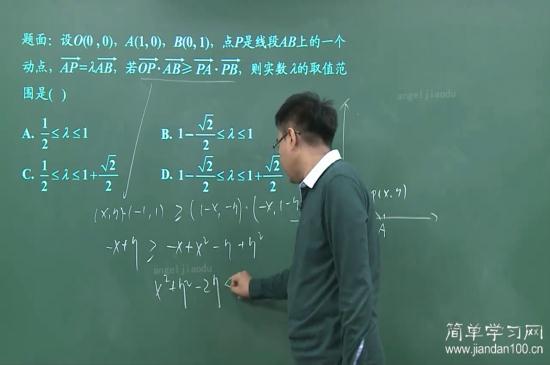 题面：设O(0,0)，A(1,0)，B(0,1)，点P是线段AB上的一个
动点，$\overrightarrow{AP}=\lambda\overrightarrow{AB}$，若$\overrightarrow{OP}\cdot\overrightarrow{AB}\geq\overrightarrow{PA}\cdot\overrightarrow{PB}$，则实数λ的取值范
围是( )
A. $\frac{1}{2}\leq\lambda\leq1$ B. $1-\frac{\sqrt{2}}{2}\leq\lambda\leq1$
C. $\frac{1}{2}\leq\lambda\leq1+\frac{\sqrt{2}}{2}$ D. $1-\frac{\sqrt{2}}{2}\leq\lambda\leq1+\frac{\sqrt{2}}{2}$
angeljiaodu
P(x,y)
A
(x,y)·(-1,1) ≥ (1-x,-y)·(-x,1-y
-x+y ≥ -x+x²-y+y²
angeljiaodu
x²+y²-2y
简单学习网
www.jiandan100.cn